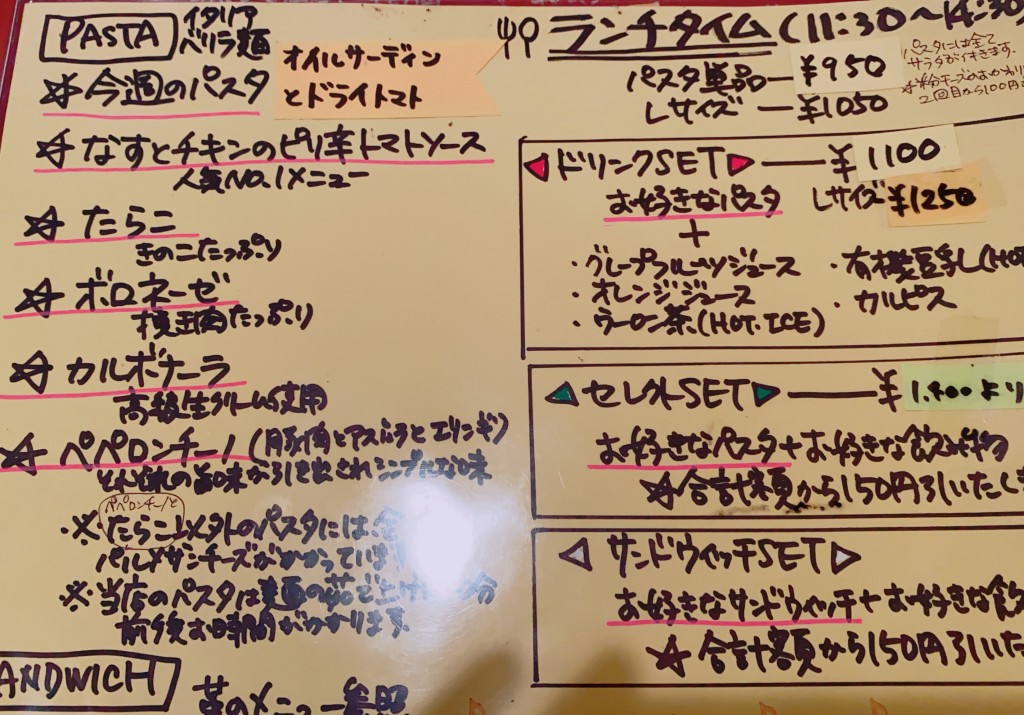 PASTA イタリア
ベリラ麺
☆今週のパスタ
オイルサーディン
とドライトマト
☆なすとチキンのピリ辛トマトソース
人気NO.1メニュー
☆たらこ
きのこたっぷり
☆ボロネーゼ
たっぷり
☆カルボナーラ
高級生クリーム使用
☆ペペロンチーノ(豚肉とアスパラとエリンギ)
それぞれの旨味が引き出されシンプルな味
ペペロンチーノと
・※たらこ以外のパスタには
パルメザンチーズがかかっています
※当店のパスタは麺の茹で上げ 分
前後お時間がかかります。
ANDWICH
ランチタイム(11:30〜14:30
パスタ単品—¥950
Lサイズ—¥1050
パスタには全て
サラダが付きます。
☆粉チーズのおかわり
2回目から100円
◀ドリンクSET▶——¥1100
お好きなパスタ Lサイズ¥1250
+
・グレープフルーツジュース
・オレンジジュース
・ウーロン茶(HOT.ICE)
・有機豆乳(HO
・カルピス
◀セレクトSET▶——¥1.400より
お好きなパスタ+お好きな飲み物
☆合計額から150円引いたし
◁サンドウィッチSET▷
お好きなサンドウィッチ+お好きな飲
☆合計額から150円引いた